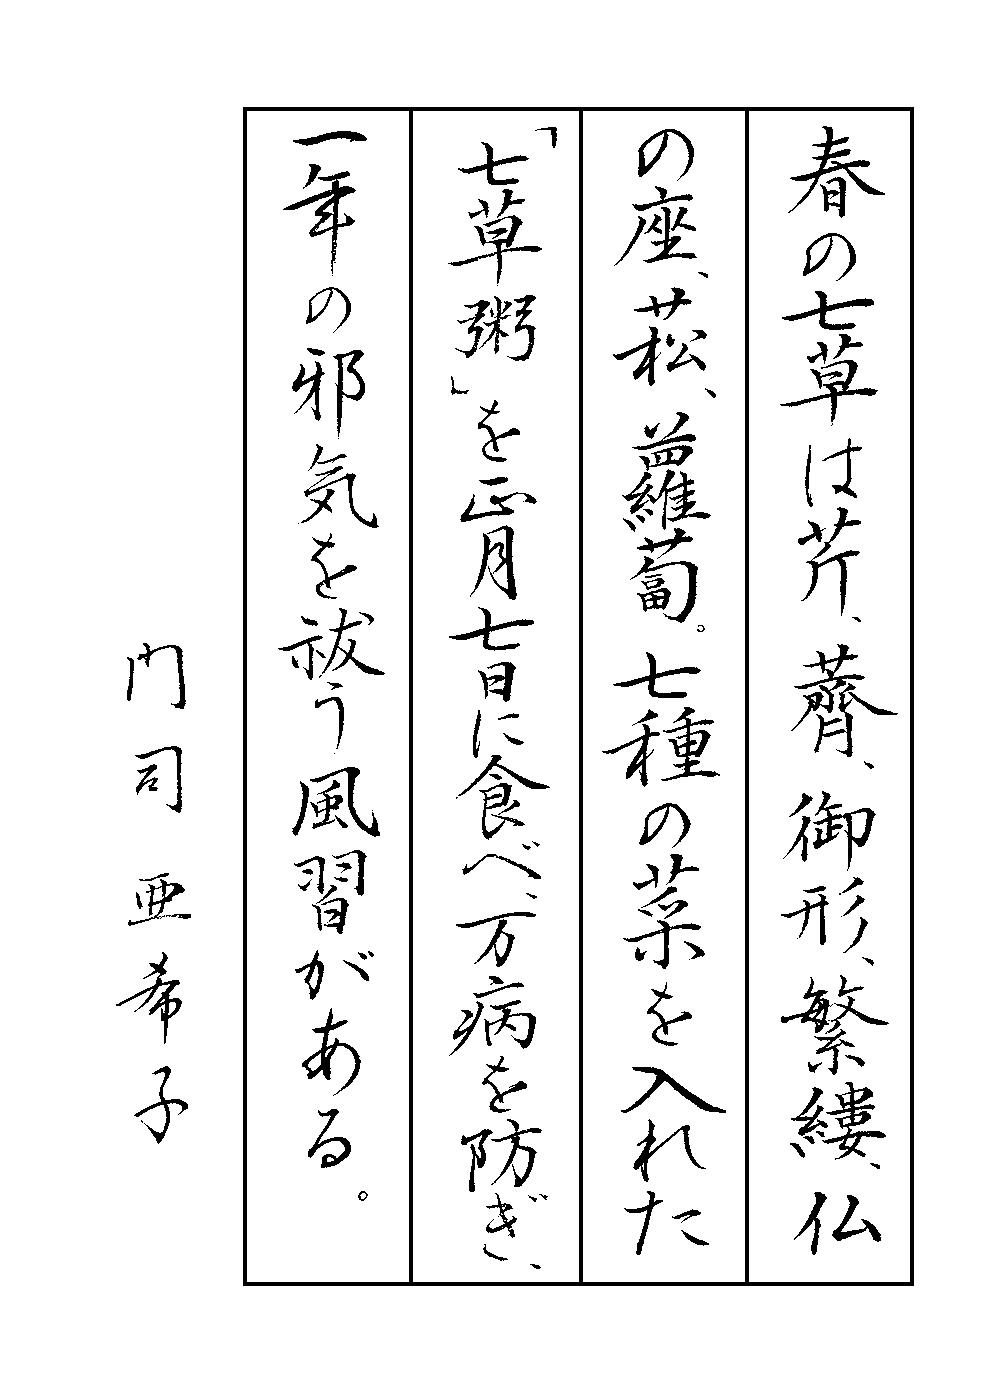 春の七草は芹、薺、御形、繁縷、仏
の座、菘、蘿蔔。七種の菜を入れた
「七草粥」を正月七日に食べ、万病を防ぎ、
一年の邪気を祓う風習がある。
門司亜希子